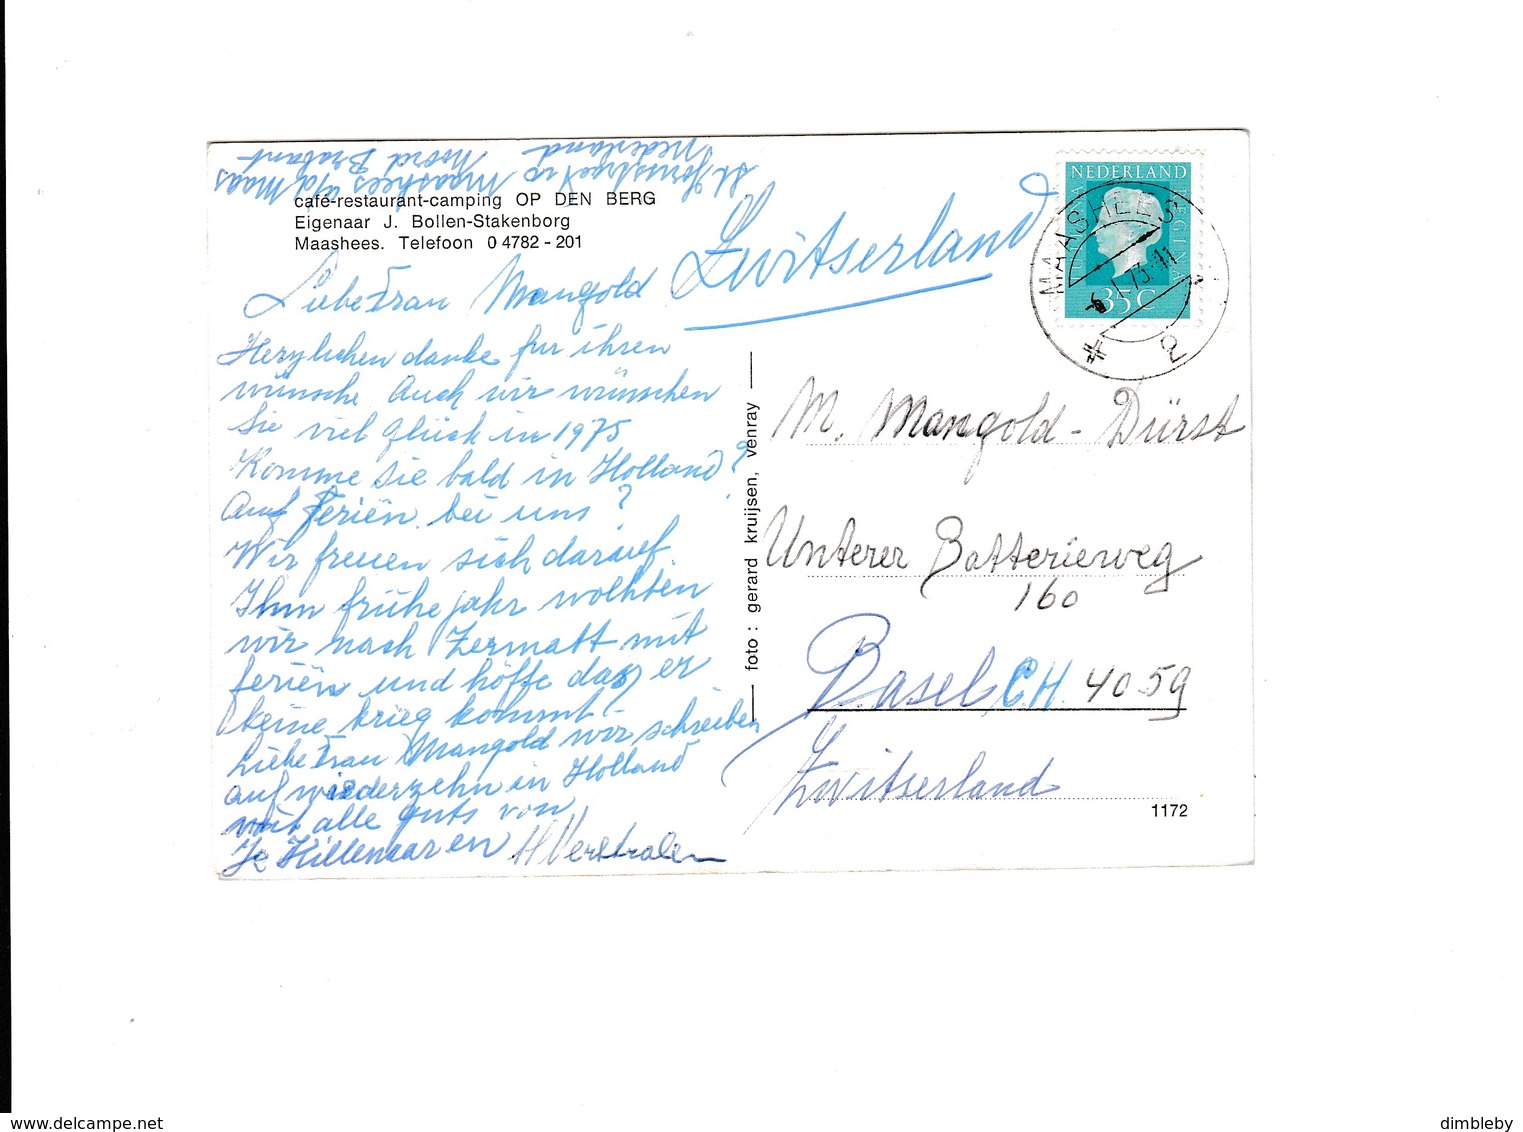 St. Jorisstraat 12 Maashees a/d Maas
Nederland Noord Brabant
café-restaurant-camping OP DEN BERG
Eigenaar J. Bollen-Stakenborg
Maashees. Telefoon 0 4782 - 201
Zwitserland
NEDERLAND
35 C
MAASHEES
2
Liebe Frau Mangold
Herzlichen danke fur ihren
wünsche. Auch wir wünschen
Sie viel Glück in 1975
Komme Sie bald in Holland?
Auf Feriën bei uns?
Wir freuen sich darauf.
Ihm frühejahr wolhten
wir nach Zermatt mit
feriën und höffe das er
keine krieg kommt
Liebe Frau Mangold wir schreiben
auf wiederzehn in Holland
mit alle guts von
Je Killenaar en H Verstralen
foto : gerard kruijsen, venray
M. Mangold - Dürst
Unterer Batterieweg
160
Basel CH 4059
Zwitserland
1172
www.delcampe.net
dimbleby